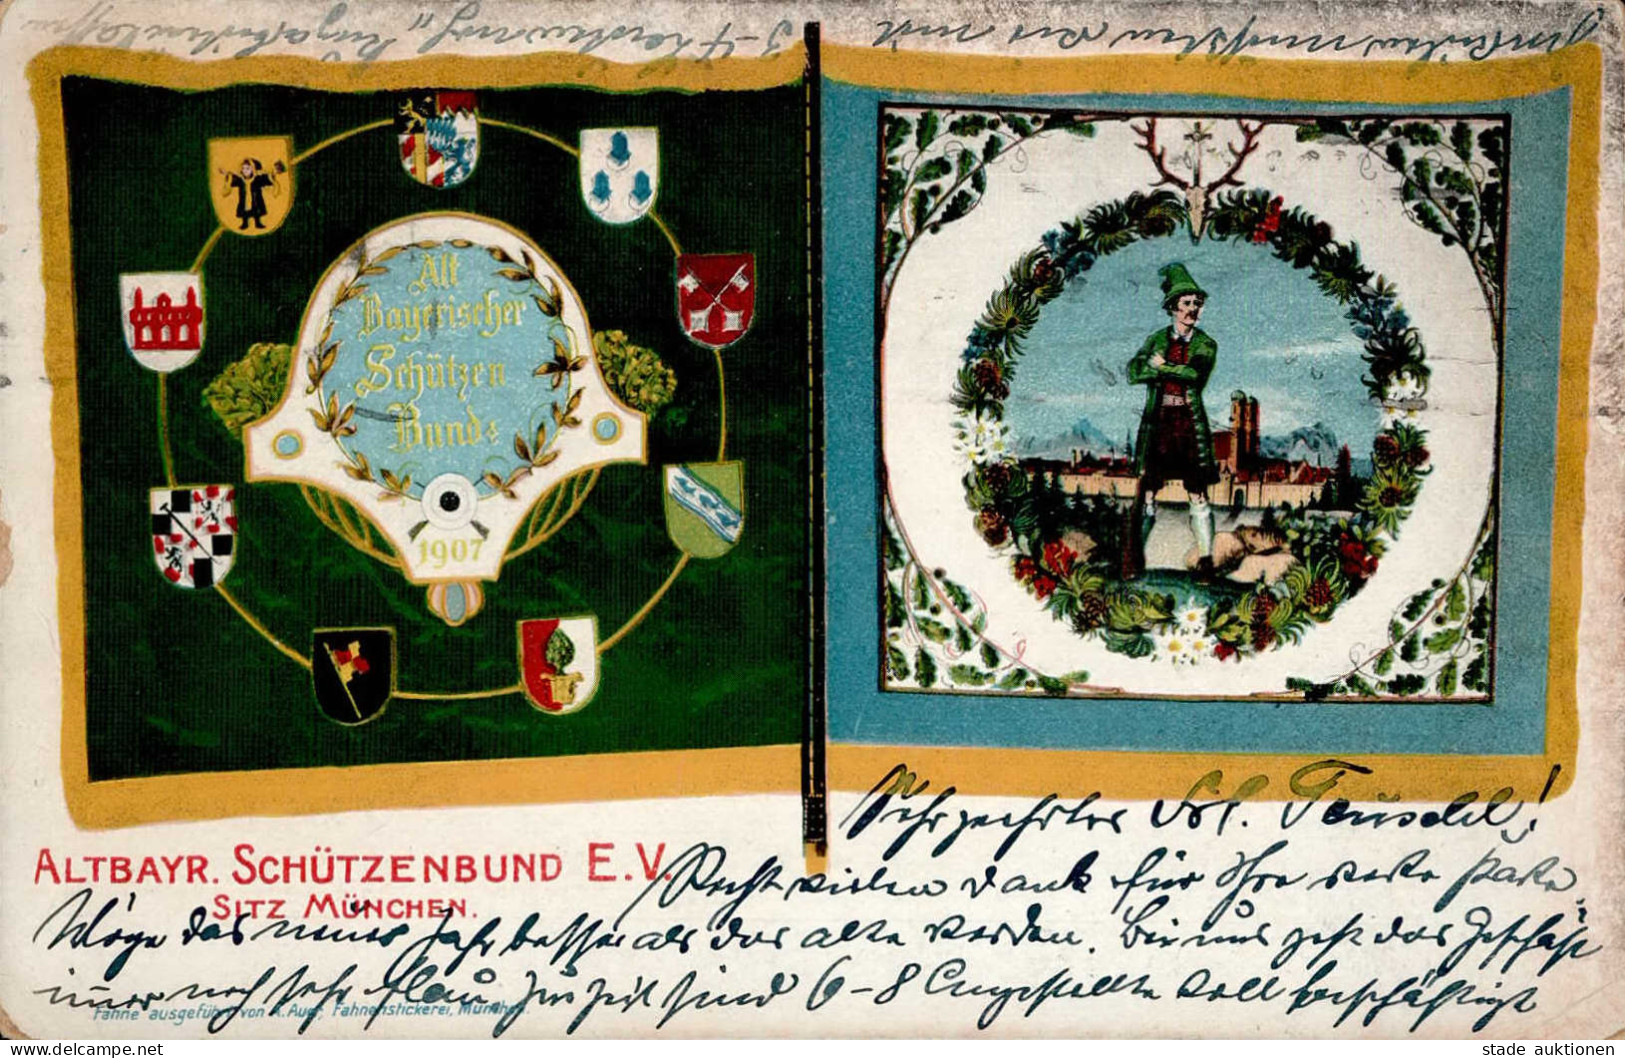 Alt
Bayerischer
Schützen
Bund
1907
ALTBAYR. SCHÜTZENBUND E.V.
SITZ MÜNCHEN.
Fahne ausgeführt von A. Auer, Fahnenstickerei, München.
Sehr geehrtes Frl. Teuschl!
Recht vielen Dank für Ihre werte Karte.
Möge das neue Jahr besser als das alte werden. Bei uns geht das Geschäft
immer noch sehr flau zur Zeit sind 6-8 Angestellte voll beschäftigt
3-4
stade auktionen
© www.delcampe.net